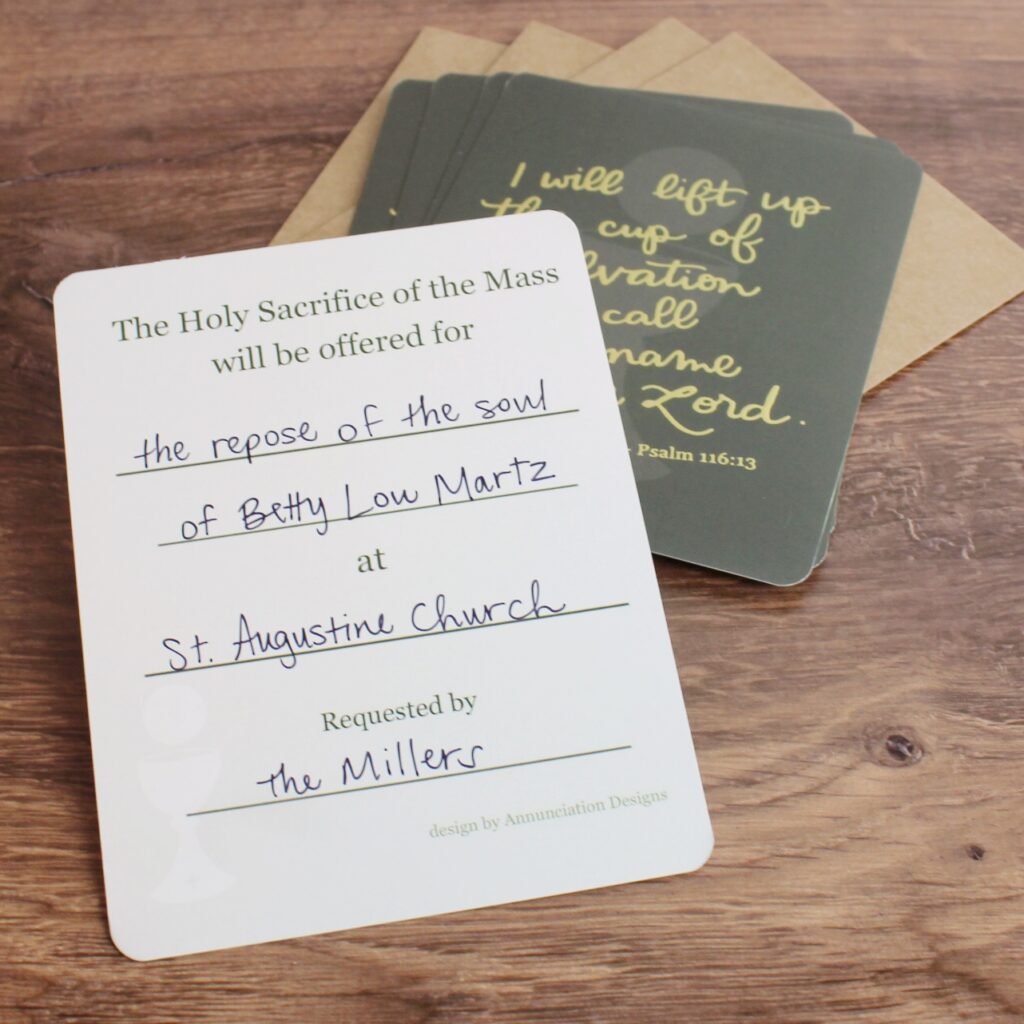 I will lift up
cup of
call
name
Lord.
Psalm 116:13
The Holy Sacrifice of the Mass
will be offered for
the repose of the soul
of Betty Lou Martz
at
St. Augustine Church
Requested by
the Millers
design by Annunciation Designs